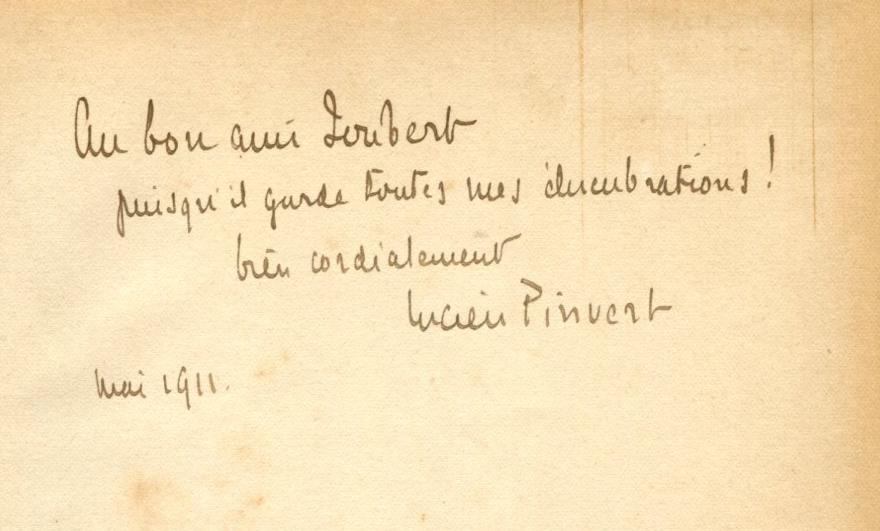 Au bon ami Joubert
puisqu'il garde toutes mes élucubrations !
bien cordialement
Lucien Pinvert
mai 1911.